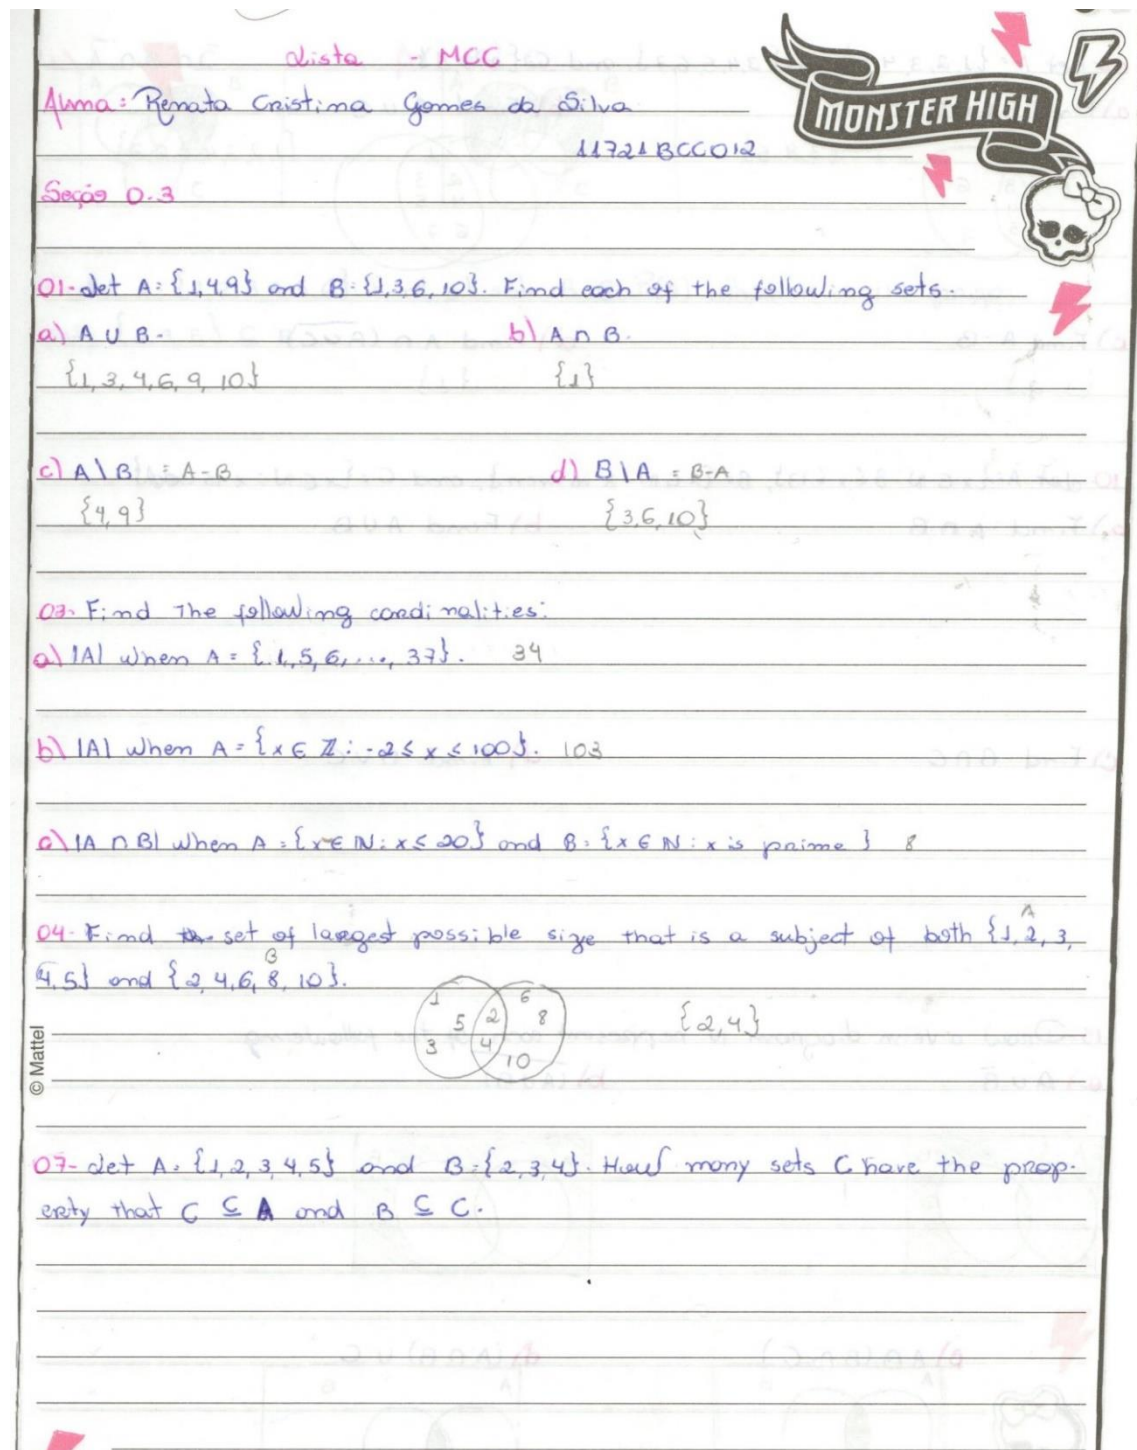 Lista - MCC
Aluna: Renata Cristina Gomes da Silva
MONSTER HIGH
11721BCC012
Seção 0.3
01- Let A = {1,4,9} and B = {1,3,6,10}. Find each of the following sets.
a) A ∪ B. b) A ∩ B.
{1, 3, 4, 6, 9, 10} {1}
c) A \ B = A - B d) B \ A = B-A
{4, 9} {3,6,10}
03- Find The following cardinalities:
a) |A| when A = {1,5,6,...,37}. 34
b) |A| when A = {x ∈ ℤ : -2 ≤ x ≤ 100}. 103
c) |A ∩ B| when A = {x ∈ ℕ : x ≤ 20} and B = {x ∈ ℕ : x is prime } 8
04- Find set of largest possible size that is a subject of both {1, 2, 3,
A
4,5} and {2,4,6,8,10}.
B
1 5 3 2 4 6 8 10 {2,4}
© Mattel
07- Let A = {1,2,3,4,5} and B = {2,3,4}. How many sets C have the prop-
erty that C ⊆ A and B ⊆ C.